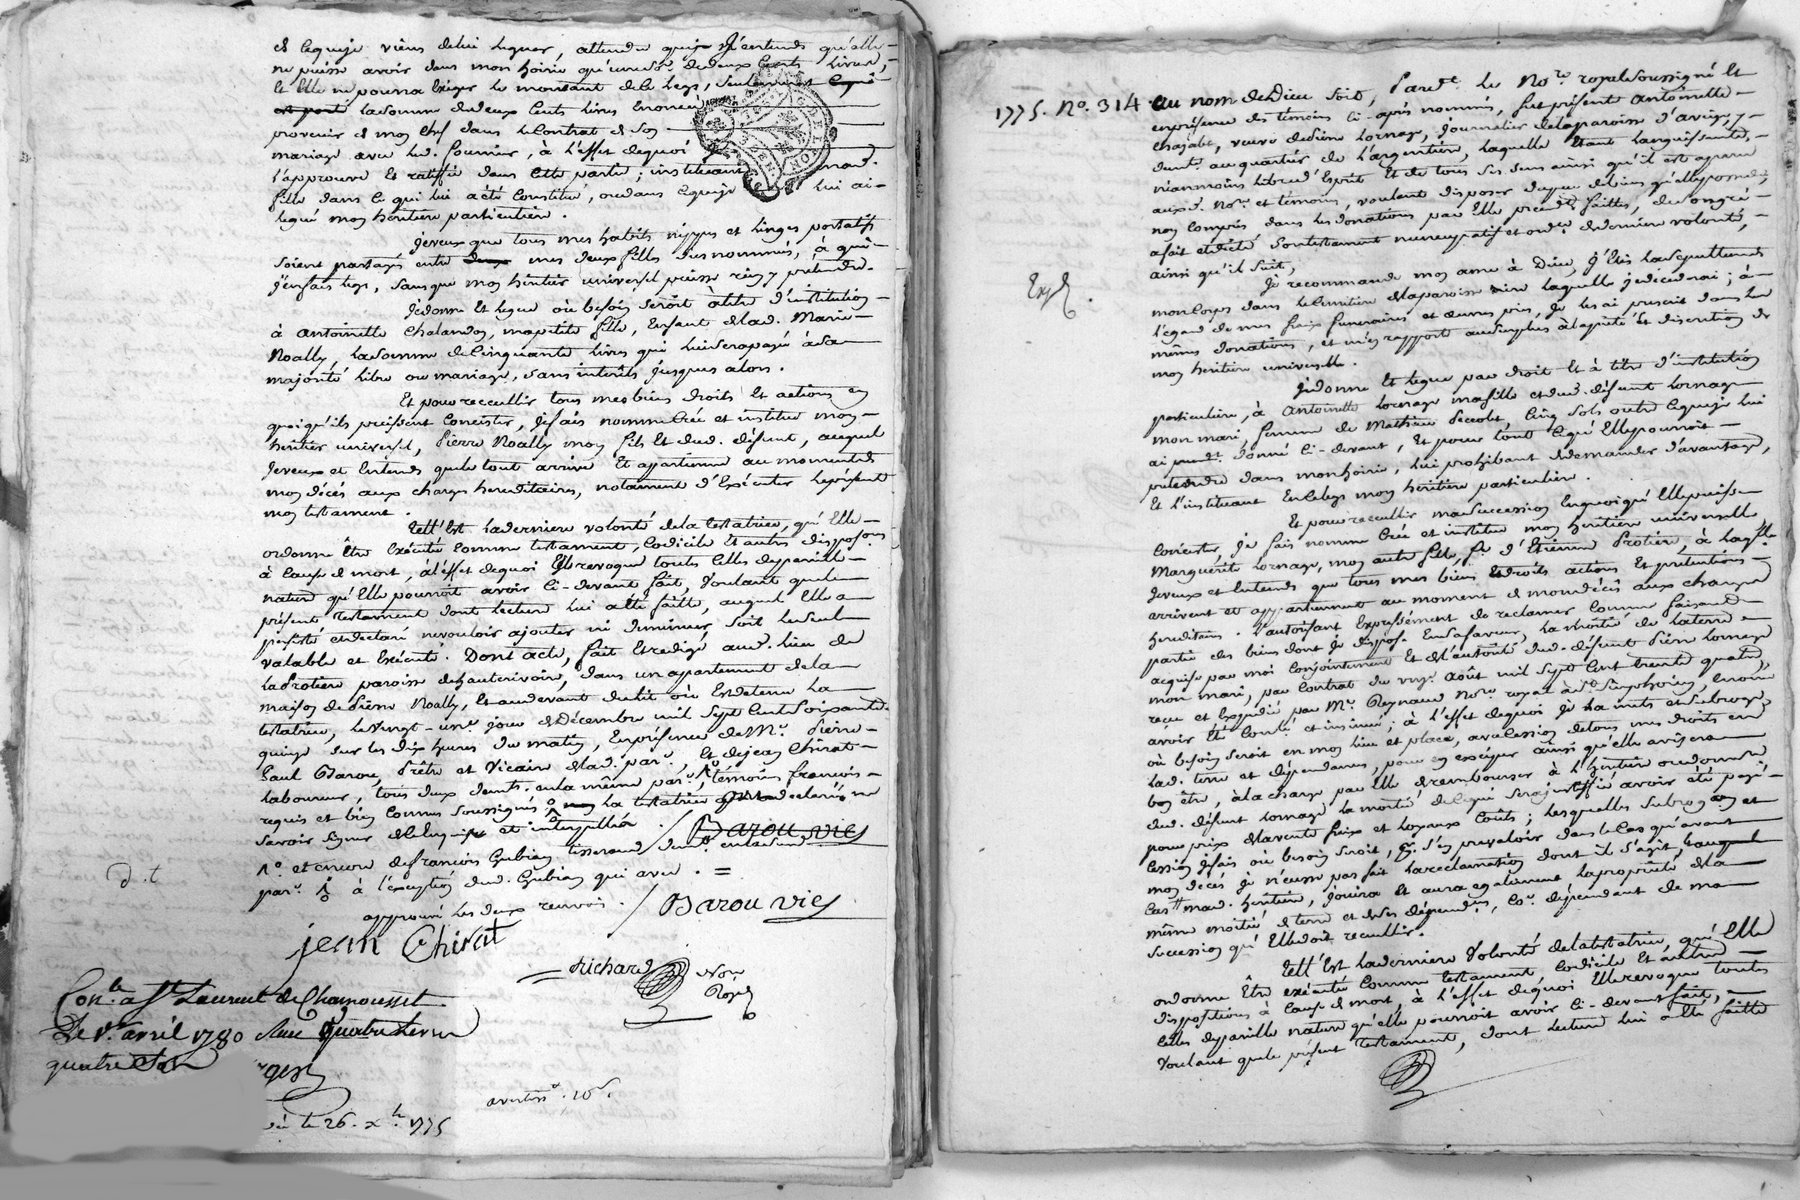 et ceque je viens de lui leguer, attendu que je n'entends qu'elle
ne puisse avoir dans mon hoirie qu'une so.e de deux Cents livres,
et Elle ne pourra Exiger le montant de le legs, seulement
est porté la somme de deux Cents livres
provenir de mon chef dans le Contrat de son
mariage avec led. fournier, à l'effet dequoi je
l'approuve et ratiffie dans cette partie; instituant mad.
fille dans ce qui lui a été Constitué, ou dans ceque je lui ai
legué mon héritiere particuliere.
Je veux que tous mes habits nippes et linges portatifs
soient partagés entre deux mes deux filles susnommées, à qui
j'en fais legs, sans que mon héritier universel puisse rien y prétendre.
Je donne et legue où besoin seroit à titre d'institution
à Antoinette Chalandon, ma petite fille, Enfant de lad. Marie
Noally, la somme de Cinquante livres qui lui sera payée à sa
majorité libre ou mariage, sans interêts jusques alors.
Et pour recœullir tous mes biens droits et actions en
quoi qu'ils puissent Concister, je fais nomme Crée et institue mon
héritier universel, Pierre Noally mon fils et dud. défunt, auquel
je veux et Entends que le tout arrive et appartienne au moment de
mon décès aux charges héréditaires, notament d'Exécuter le présent
mon testament.
Tell'Est la derniere volonté de la testatrice, qu'Elle
ordonne Être Exécutée Comme testament, Codicile et autres disposõns
à Cause de mort, à l'effet dequoi Elle revoque toutes Celles de pareille
nature qu'Elle pourroit avoir Ci-devant fait, Voulant que le
présent testament dont lecture lui a été faitte, auquel Elle a
persisté et déclaré ne vouloir ajouter ni diminuer, soit le seul
valable et Exécuté. Dont acte, fait et redigé aud. lieu de
la Protiere paroisse de hauterivoire, dans un appartement de la
maison de Pierre Noally, et au devant du lit où Est detenue la
testatrice, le vingt-un.e jour de Décembre mil sept Cent soixante
quinze sur les dix heures du matin, En présence de M.r Pierre
Paul Barou, Prêtre et Vicaire de lad. par.e, et de jean Chirat
laboureur, tous deux deme.nts en la même par.e, 1° témoins françois
requis et bien Connus soussignés 2° la testatrice a déclaré ne
savoir signer de ce enquise et interpellée. / Barou vic
1° et encore de françois Gubian tisserand dem.t en lad.
par.e 2° à l'exception dud. Gubian qui avec. =
approuvé les deux renvois. / Barou vic
jean Chirat
d.t
Richard No.re Royal
Con.lé a S.t Laurent de Chamousset
Le 1.er avril 1780
quatre
avertiss.t 10.s
le 26. x.bre 1775
1775. N°. 314. Au nom de Dieu soit, Pardt. le No.re royal soussigné et
en présence des témoins Ci-après nommés, fut présente Antoinette
Chazalet, veuve de Pierre Lornage, journalier de la paroisse d'aveize, y
deme.nt au quartier de l'argentiere, laquelle Etant languissante,
néanmoins libre d'Esprit et de tous ses sens ainsi qu'il est apparu
auxd. No.re et témoins, voulant disposer de ses biens qu'elle possede,
non Compris dans les donations par Elle faittes, de son gré
a fait et dicté son testament nuncupatif et ord.e de derniere volonté,
ainsi qu'il suit,
Exp.é.
Je recommande mon ame à Dieu, j'Elis la sepulture de
mon Corps dans le Cimetiere de la paroisse riere laquelle je décederai; à
l'egard de mes frais funeraires et œuvres pies, je les ai prescrit dans les
mêmes donations, et m'en rapporte au surplus à la pieté et discretion de
mon héritiere universelle.
Je donne et legue par droit et à titre d'institution
particuliere, à Antoinette Lornage ma fille et dud. défunt Lornage
mon mari, femme de Mathieu Pecolet, Cinq sols outre ceque je lui
ai donné Ci-devant, et pour tout ce qu'Elle pourroit
prétendre dans mon hoirie, lui prohibant de demander d'avantage,
et l'instituant En ce legs mon héritiere particuliere.
Et pour recœullir ma succession En quoi qu'Elle puisse
Concister, je fais nomme Crée et institue mon héritiere universelle
Marguérite Lornage, mon autre fille, fe. d'Etienne Protiere, à laq.lle
je veux et Entends que tous mes biens droits actions et prétentions
arrivent et appartiennent au moment de mon décès aux charges
héréditaires. L'autorisant Expressément de reclamer Comme faisant
partie des biens dont je dispose En sa faveur, la moitié de la terre
acquise par moi Conjointement et de l'autorité dud. défunt Pierre Lornage
mon mari, par Contrat du vingt Août mil sept Cent trente quatre,
reçu et Expedié par M.e Reynaud No.re royal à S.t Simphorien,
avoir Été Contlé et insinué; à l'effet dequoi je la mets et subroge
où besoin seroit en mon lieu et place, avec Cession de tous mes droits en
lad. terre et dépendances, pour en exciper ainsi qu'elle avisera
bon être, à la charge par Elle de rembourser à l'héritier
dud. défunt Lornage la moitié de ce qui sera justiffié avoir été payé
pour prix de la vente frais et loyaux Coûts; lesquelles subrogation et
Cession je fais où besoin seroit, p.r s'en prévaloir dans le Cas qu'avant
mon décès je n'eusse pas fait la reclamation dont il s'agit, auquel
Cas mad. héritiere, jouira et aura egalement la propriété de la
même moitié de terre et de ses dépend.ces, Co.e dépendant de ma
succession qu'Elle doit recœullir.
Tell'Est la derniere Volonté de la testatrice, qu'Elle
ordonne Être exécutée Comme testament, Codicile et autre
dispositions à Cause de mort, à l'effet dequoi Elle revoque toutes
Celles de pareille nature qu'elle pourroit avoir Ci-devant fait,
Voulant que le présent testament, dont lecture lui a été faitte